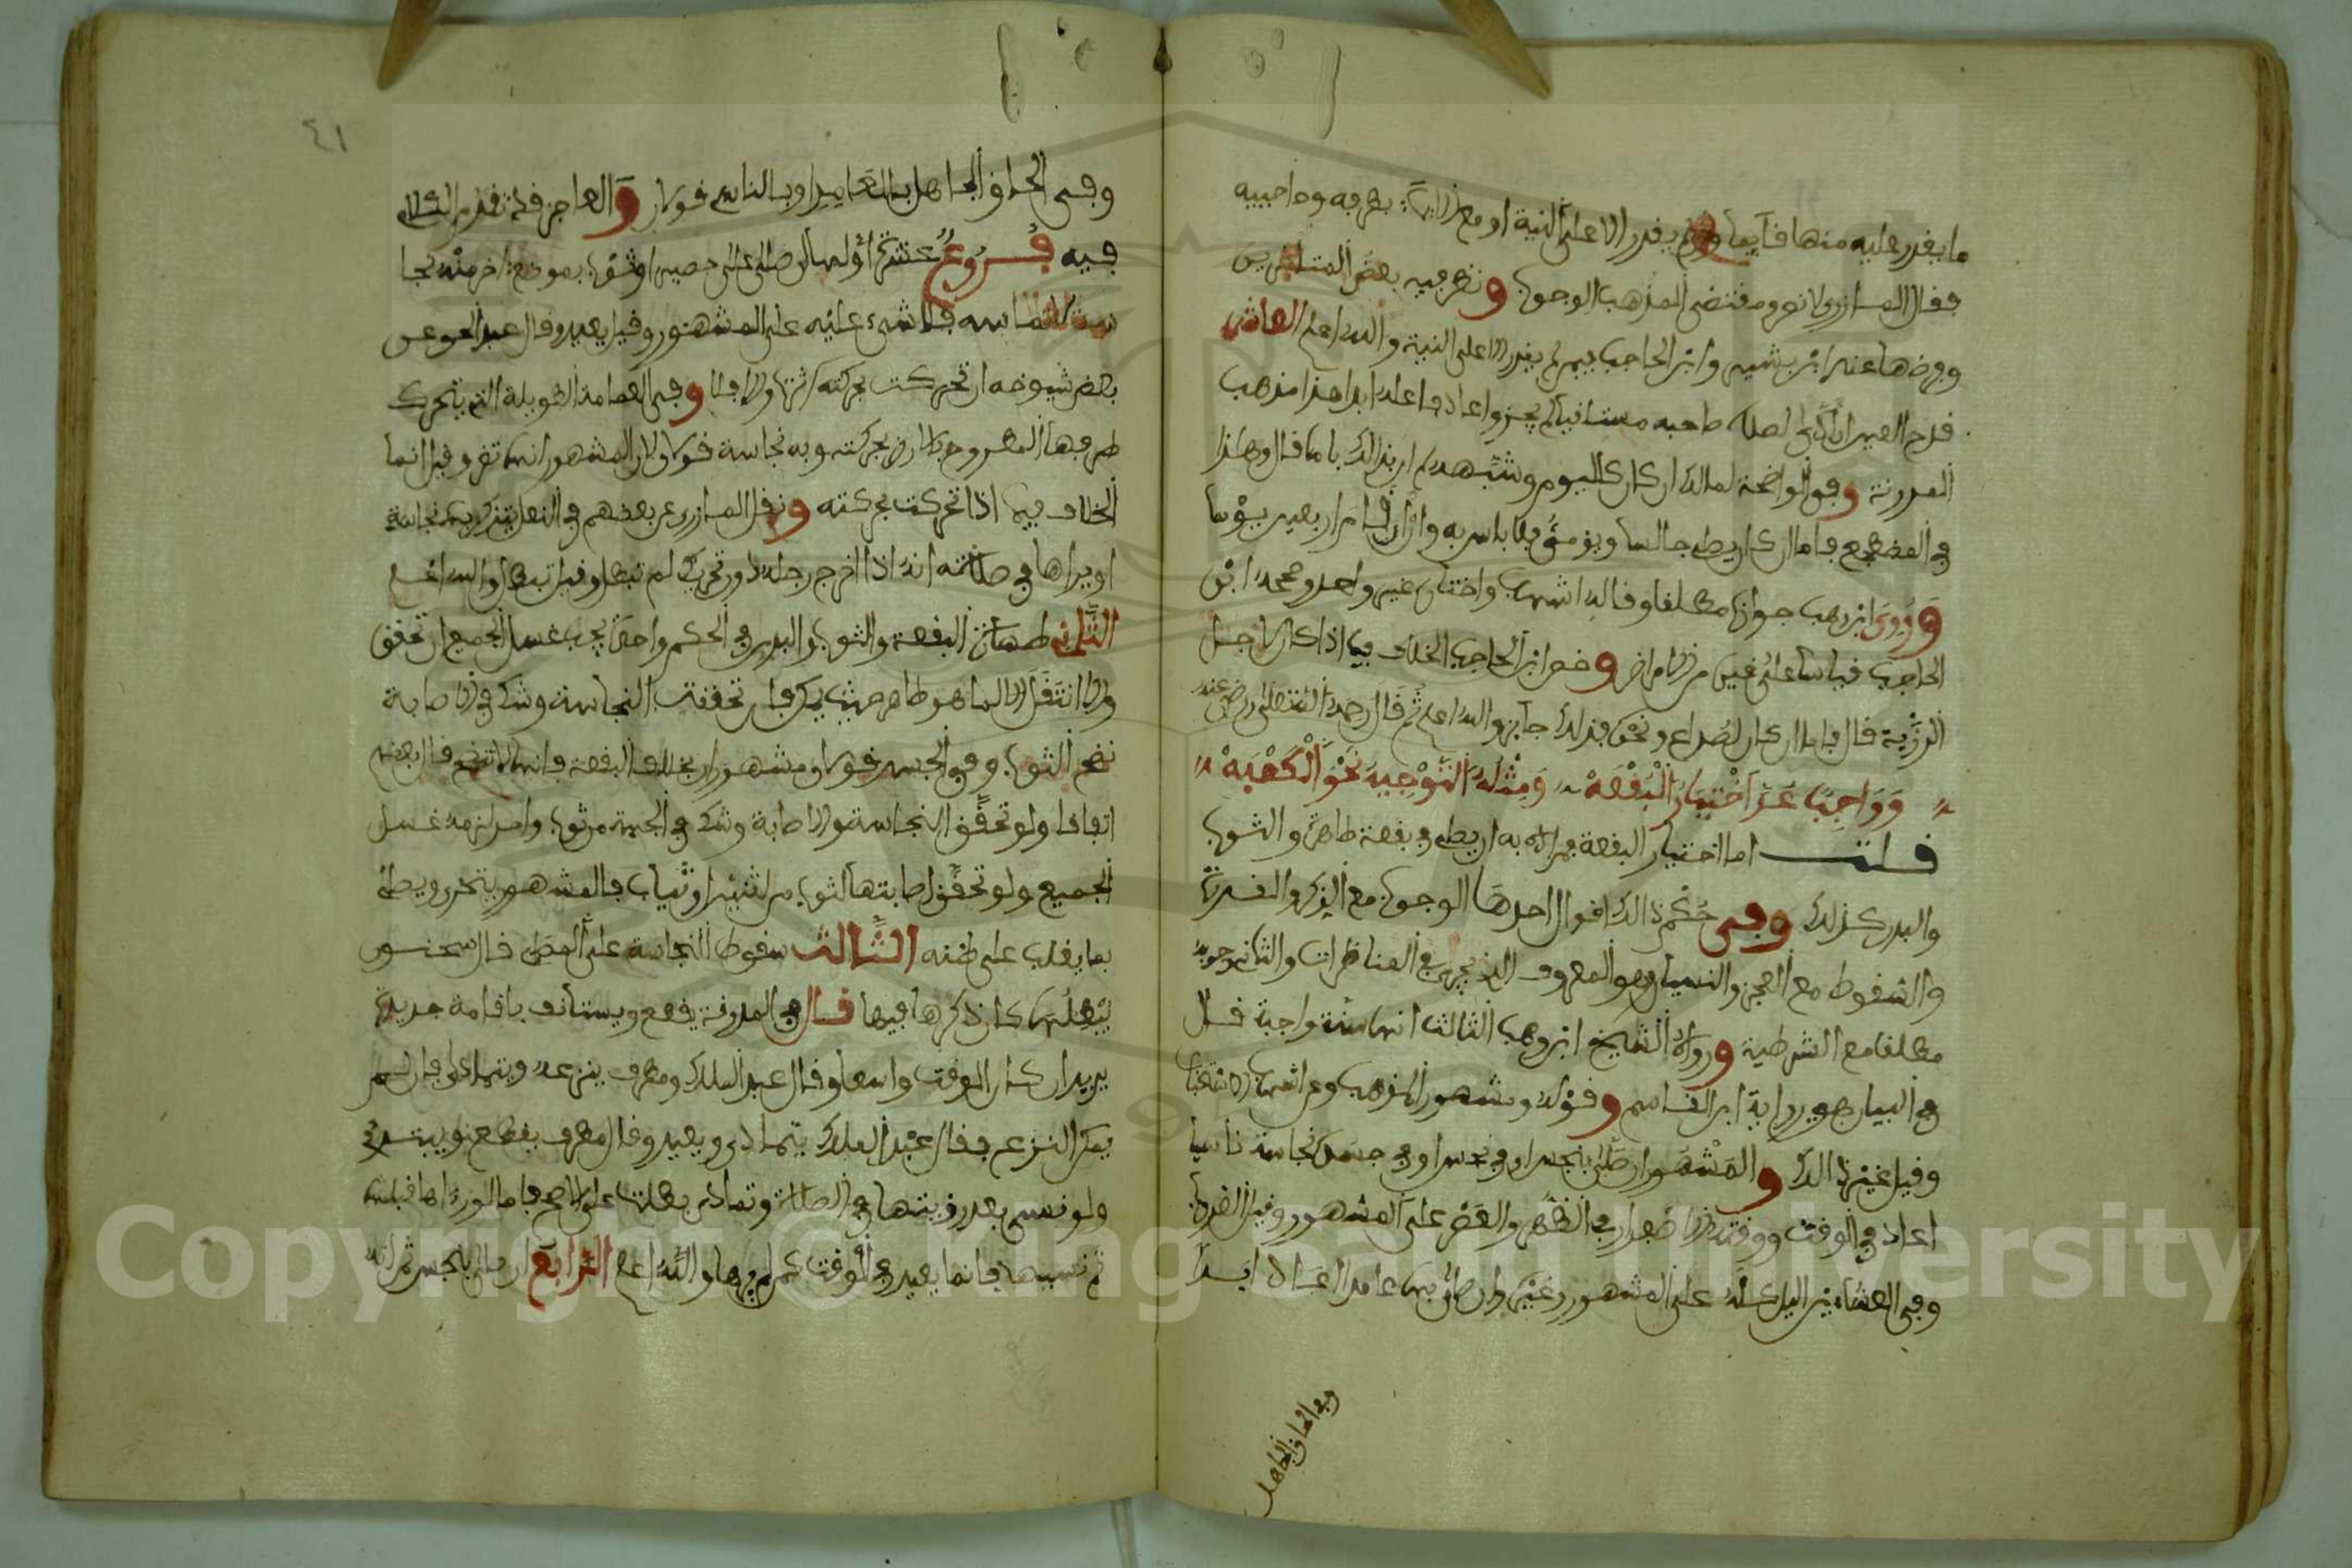 ما يقدر عليه منها فآيما ولم يقدر الا على النية او مع الايماء بطرفه وحاجبيه
فقال المازري لا نص ومقتضى المذهب الوجوب ونظر فيه بعض المتأخرين
وفرضها عند ابن بشير وابن الحاجب فيمن لم يقدر الا على النية والله اعلم العاشر
قدح العين ان ادى لصلاة صاحبه مستلقيا لم يجز واعاد صاحبه ابدا هذا مذهب
المدونة وفي الواضحة لمالك ان كان كاليوم وشبهه
في المضطجع فاما ان كان يصلي جالسا ويومئ فلا باس به
وروى ابن وهب جوازه مطلقا وقاله اشهب واختاره غير واحد وصححه ابن
الحاجب قياسا على غيره من الامراض وخص ابن الحاجب الخلاف فيما اذا كان لاجل
الرؤية قال فاما ان كان لصداع ونحوه فذلك جائز والله اعلم ثم قال رحمه الله تعالى ورضي عنه
وَوَاجِبٌ عَنِ اخْتِيَارِ الْبُقْعَهْ وَمِثْلُهُ التَّوْجِيهُ نَحْوَ الْكَعْبَهْ
قلت اما اختيار البقعة فمراده به ان يصلي في بقعة طاهرة والثوب
والبدن كذلك وفي حكم ذالك اقوال احدها الوجوب مع الذكر والقدرة
والسقوط مع العجز والنسيان وهو المعروف الذي يجري في المناظرات والثاني وجوبه
مطلقا مع الشرطية ورواه الشيخ ابن وهب الثالث انها سنة واجبة قال
في البيان هو رواية ابن القاسم وقوله ومشهور المذهب وعن اشهب الاستحباب
وقيل غير ذالك والمشهور ان صلى بنجس او في نجس او في جسده نجاسة ناسيا
اعاد في الوقت ووقته الاصفرار في الظهر والعصر على المشهور وقيل الغروب
وفي العشاءين الليل كله على المشهور وغيره وان صلى بها عامدا اعاد ابدا
وفي الحاق الجاهل
٤١
وفي الحاق الجاهل بالعامد او بالناس قولان والعاجز قد تقدم الكلام
فيه فروع عشرة اولها ان صلى على حصير او ثوب بموضع اخر منه نجا
سة لا تماسه فلا شيء عليه على المشهور وقيل يعيد وقال عبد الحق عن
بعض شيوخه ان تحركت بحركته اثرت والا فلا وفي العمامة الطويلة التي يتحرك
طرفها المطروح بالارض بحركته وبه نجاسة قولان المشهور انها تضر وقيل انما
الخلاف فيما اذا تحركت بحركته ونقل المازري عن بعضهم في النعل يتذكر بها نجاسة
او يراها في صلاته انه اذا اخرج رجله دون تحريك لم تبطل وقيل تبطل والله اعلم
الثاني طهارة البقعة والثوب والبدن في الحكم واحدة يجب غسل الجميع ان تحقق
والا انتقل الا لما هو طاهر حيث يمكن فان تحققت النجاسة وشك في الاصابة
نضح الثوب وفي الجسد قولان مشهوران بخلاف البقعة فانها لا تنضح قال بعضهم
اتفاقا ولو تحقق النجاسة والاصابة وشك في الجهة من ثوب واحد لزمه غسل
الجميع ولو تحقق اصابتها الثوب من ثنتين او ثياب فالمشهور يتحرى ويصلي
بما يغلب على ظنه الثالث سقوط النجاسة على المصلي قال سحنون
يبطلها كان ذكرها فيها قال في المدونة يقطع ويستانف باقامة جديدة
يريد ان كان الوقت واسعا وقال عبد الملك ومطرف ينزعه ويتمادى فان لم
يمكن النزع فقال عبد الملك يتمادى ويعيد وقال مطرف يقطع ويبتدئ
ولو نسي بعد رؤيتها في الصلاة وتمادى بطلت على الاصح فاما لو راها قبله
ثم نسيها فانما يعيد في الوقت كمن لم يرها والله اعلم الرابع ان صلى بنجس ثم انه
Copyright © King Saud University